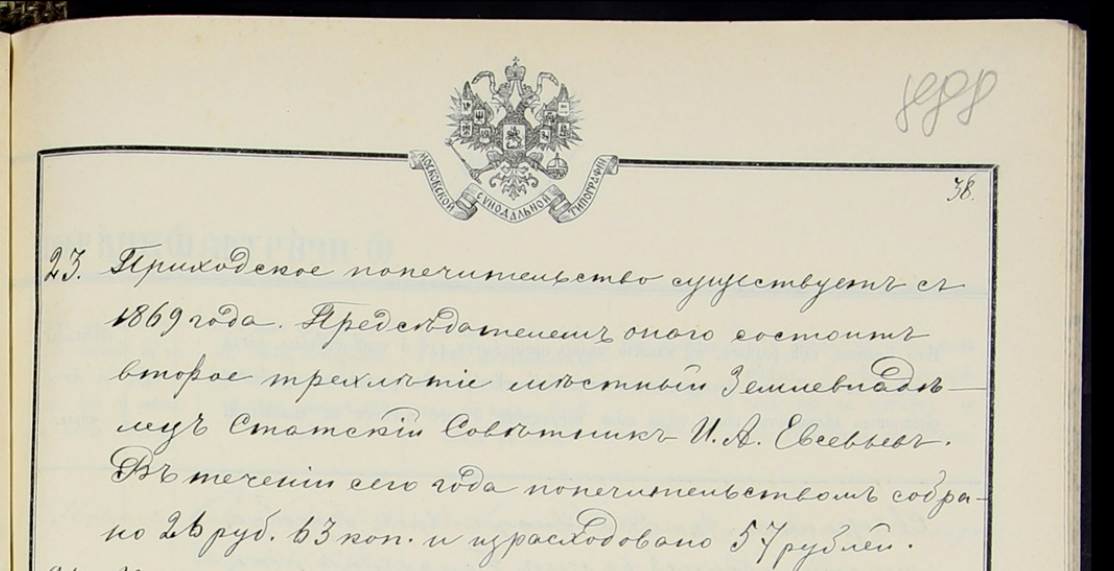 МОСКОВСКОЙ СУНОДАЛЬНОЙ ТИПОГРАФІИ
38.
23. Приходское попечительство существуетъ съ
1869 года. Предсѣдателемъ онаго состоитъ
второе трехлѣтіе мѣстный Землевладѣ-
лецъ Статскій Совѣтникъ И. А. Евсевьевъ.
Въ теченіи сего года попечительствомъ собра-
но руб. коп. и израсходовано 57 рублей.